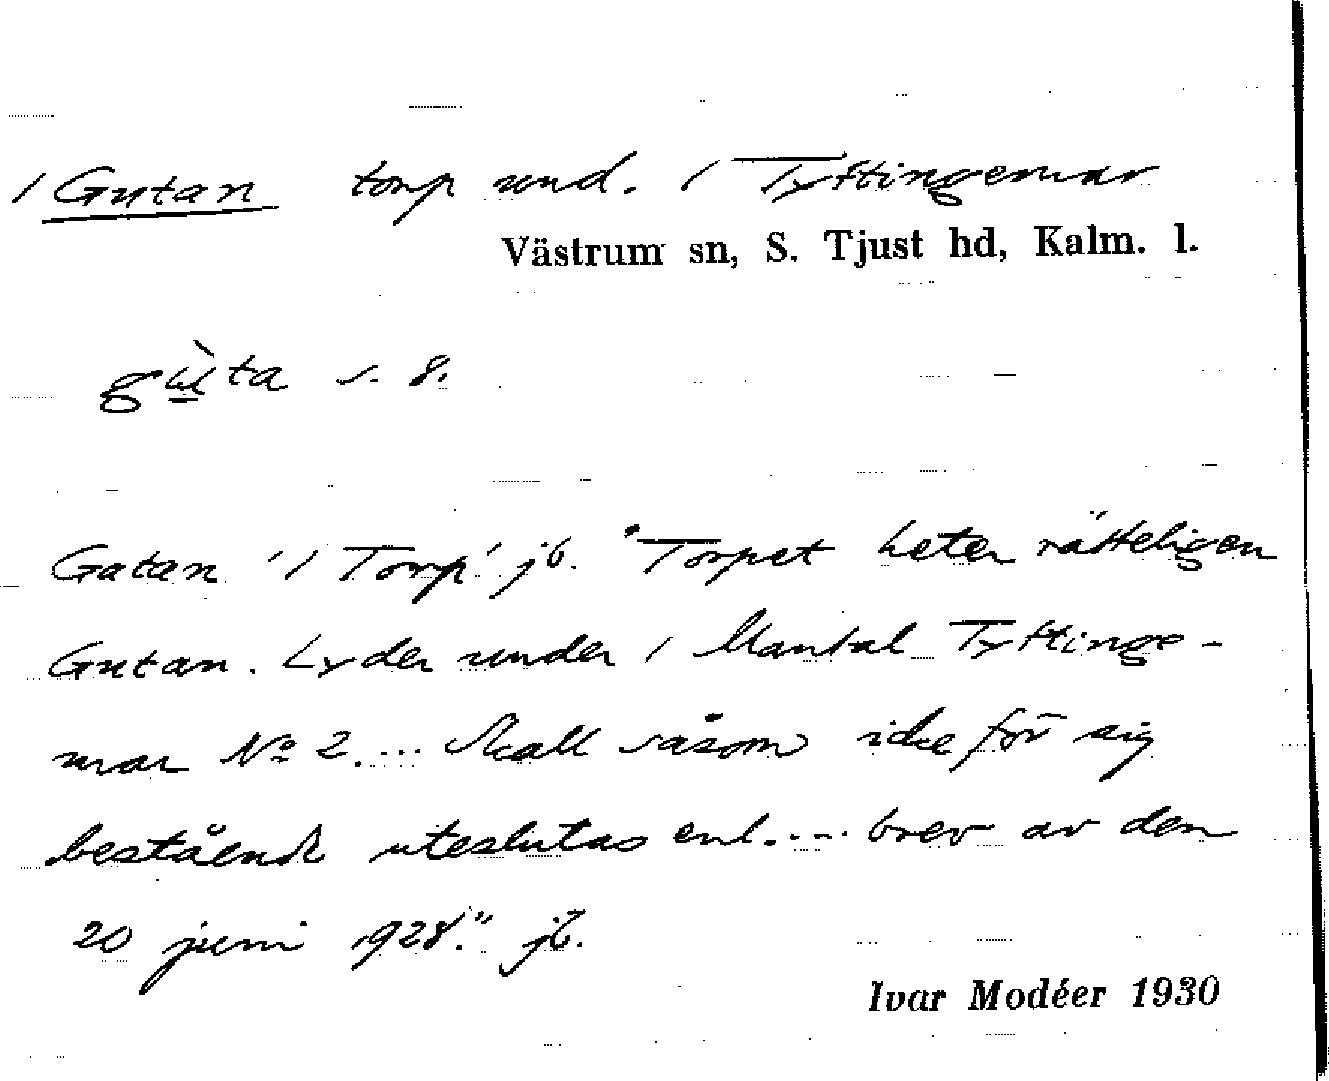 / Gutan torp und. / Tyftingemar
Västrum sn, S. Tjust hd, Kalm. l.
gùta s. 8.
Gatan '/ Torp' jb. "Torpet heter rätteligen
Gutan. Lyder under / Mantal Tyftinge-
mar No 2. ... Skall såsom icke för sig
bestående uteslutas enl. ... brev av den
20 juni 1928." jb.
Ivar Modéer 1930